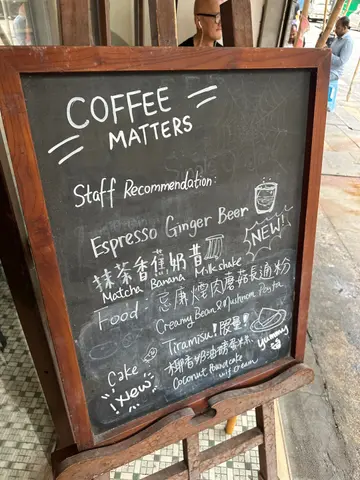 COFFEE
MATTERS
Staff Recommendation:
Espresso Ginger Beer
NEW!
抹茶香蕉奶昔
Matcha Banana Milkshake
Food
煙肉蘑菇長通粉
Creamy Bacon & Mushroom Pasta
Tiramisu! 限量!
Yummy
Cake
New!
椰香奶油
Coconut Pound cake
w/ cream